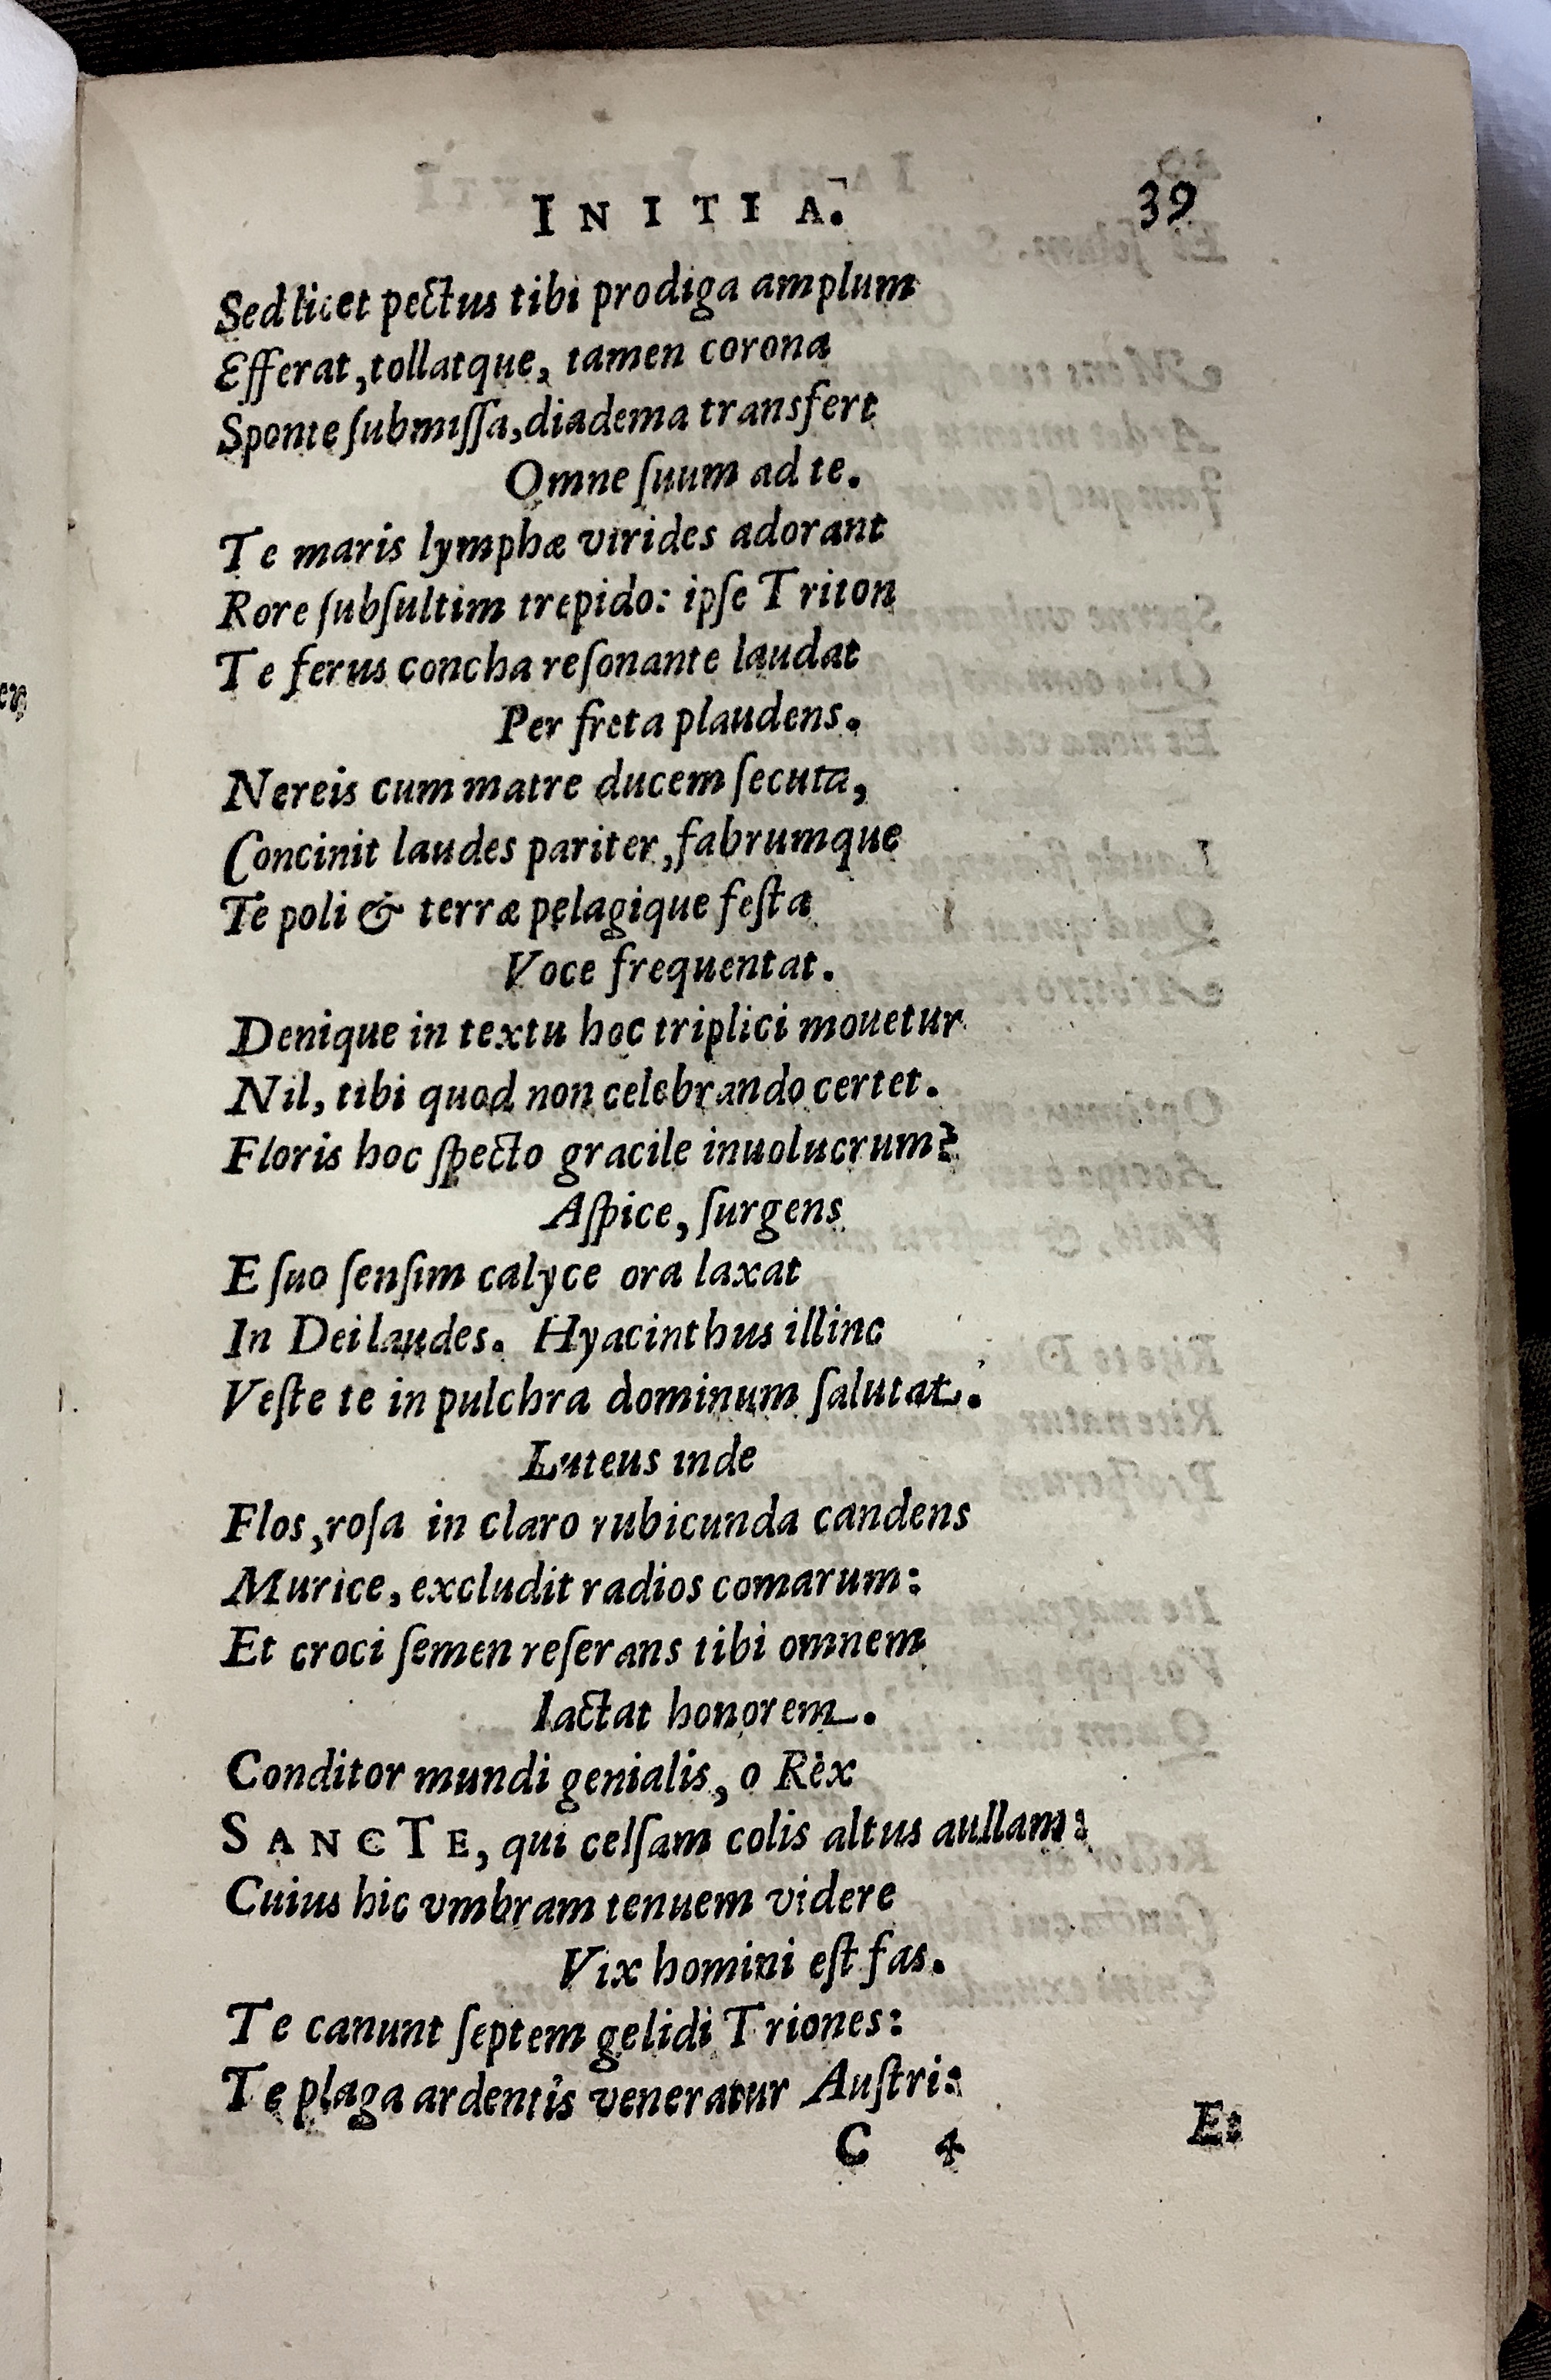 INITIA. 39
Sed licet pectus tibi prodiga amplum
Efferat, tollatque, tamen corona
Sponte ſubmiſſa, diadema transfert
Omne ſuum ad te.
Te maris lymphæ virides adorant
Rore ſubſultim trepido: ipſe Triton
Te ferus concha reſonante laudat
Per freta plaudens.
Nereis cum matre ducem ſecuta,
Concinit laudes pariter, fabrumque
Te poli & terræ pelagique feſta
Voce frequentat.
Denique in textu hoc triplici mouetur
Nil, tibi quod non celebrando certet.
Floris hoc ſpecto gracile inuolucrum?
Aſpice, ſurgens
E ſuo ſenſim calyce ora laxat
In Dei laudes. Hyacinthus illinc
Veſte te in pulchra dominum ſalutat.
Luteus inde
Flos, roſa in claro rubicunda candens
Murice, excludit radios comarum:
Et croci ſemen reſerans tibi omnem
Iactat honorem.
Conditor mundi genialis, o Rèx
SANCTE, qui celſam colis altus aullam:
Cuius hic vmbram tenuem videre
Vix homini eſt fas.
Te canunt ſeptem gelidi Triones:
Te plaga ardentis veneratur Auſtri:
C 4 Et